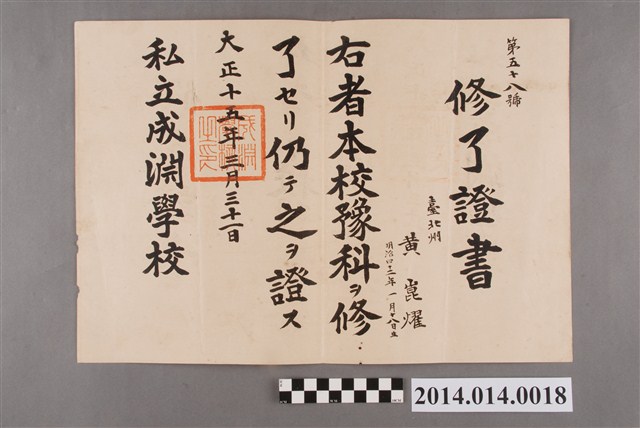 第五十八號
修了證書
臺北州
黃崑耀
明治四十二年一月十八日生
右者本校豫科ヲ修
了セリ仍テ之ヲ證ス
大正十五年三月三十一日
私立成淵學校
2014.014.0018